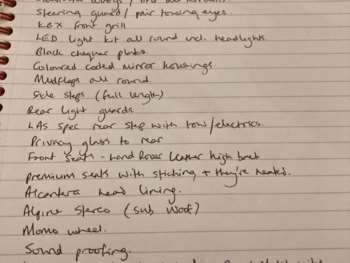 Steering guard / pair towing eyes.
KBX front grill
LED light kit all round incl. headlights.
Black chequer plates.
Coloured coded mirror housings.
Mudflaps all round.
Side steps (full length)
Rear light guards.
LAS spec rear step with tow/electrics.
Privacy glass to rear
Front seats - Land Rover leather high back
premium seats with stiching + they're heated.
Alcantera head lining.
Alpine stereo (sub woof)
Momo wheel.
Sound proofing.